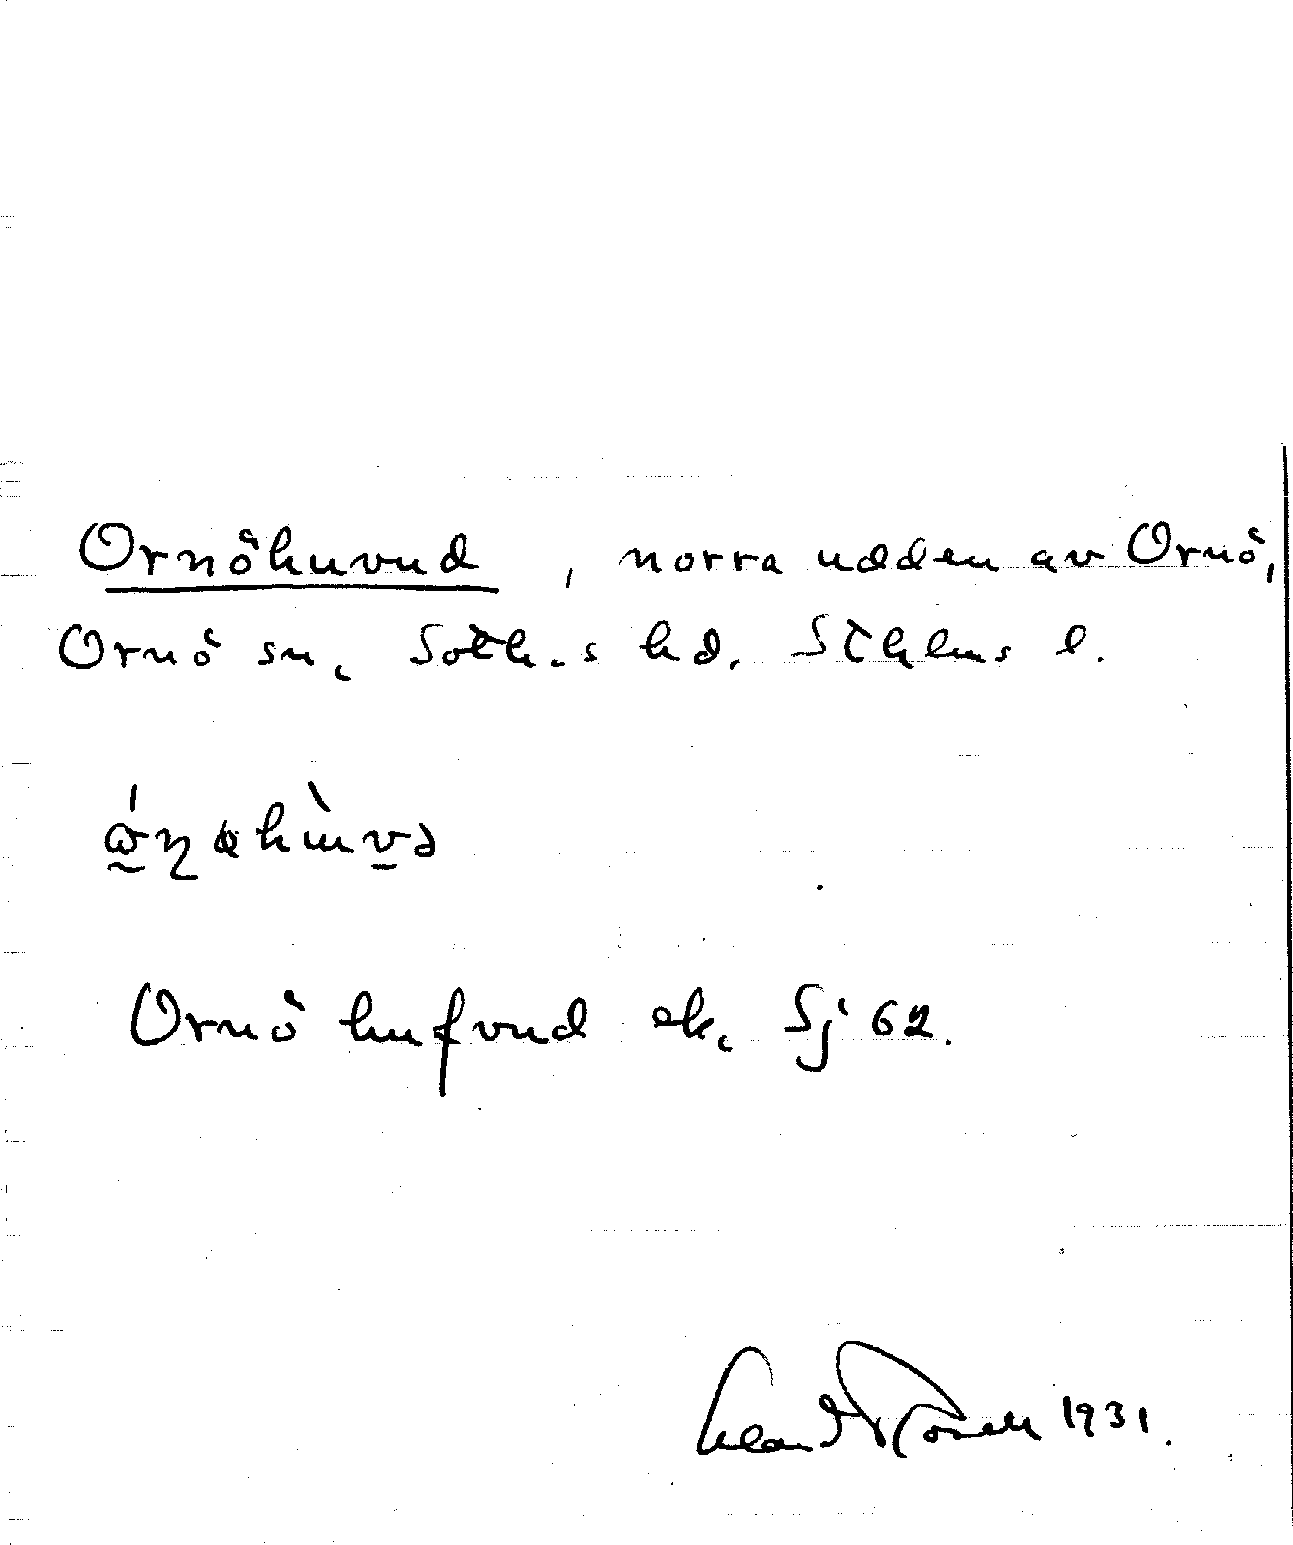 Ornöhuvud, norra udden av Ornö,
Ornö sn, Soth.s hd. Sthlms l.
Ornö hufvud ek. Sj 62.
1931.